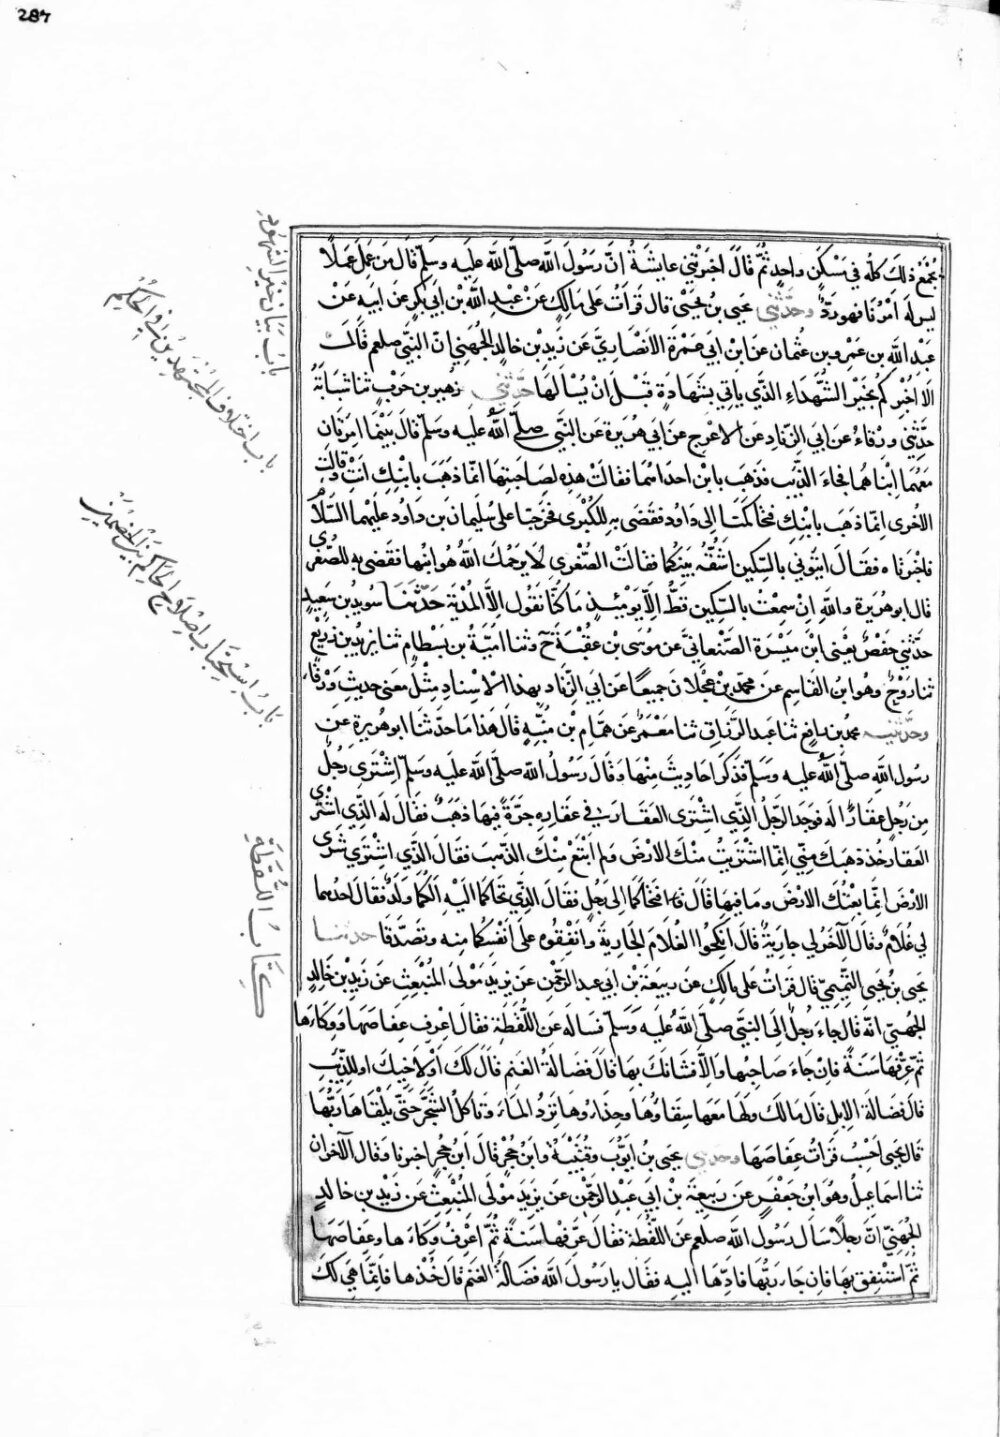 287
يُجمَعُ ذلكَ كلّه في مَسْكَنٍ واحِدٍ ثُمَّ قَالَ اخبَرَتْني عايشَةُ انَّ رَسُولَ اللهِ صلّى الله عليه وسلّم قال مَن عَمِلَ عَمَلًا
ليس له أمْرُنا فهو رَدٌّ وحدّثني يحيى بن يَحْيى قال قَرَأتُ على مَالِكٍ عَنْ عَبْدِ اللهِ بن ابي بكرٍ عَن ابيه عَنْ
عَبدِ الله بن عَمْرو بن عثمان عَن ابن ابي عَمْرَةَ الانْصاريّ عَن زَيدِ بن خالدٍ الجُهَني انّ النَّبيَّ صلعم قَالَ
الا أخْبِركُم بخَيْرِ الشُّهَدَاءِ الذَّي ياتي بشَهادَةٍ قَبْلَ انْ يُسْألَها حدّثني زهير بن حَربٍ ثنا شَبَابَةُ
حدّثني ورْقاءُ عن ابي الزّناد عَن الاعرَج عن ابي هريرَة عن النَّبي صلّى اللهُ عليه وسلّم قال بَيْنَما امرَاتان
مَعَهُما ابْناهُما فجاءَ الذِّيبُ فذهَبَ بابْنِ احداهما فقالَتْ هٰذِهِ لِصَاحِبتها انّما ذَهَبَ بابْنِكِ انْتِ وقالَت
الاُخرى انّما ذهَبَ بابْنِكِ فتحاكمَتَا الى دَاودَ فقَضَى به للكُبْرَى فخرَجتا على سُليمانَ بن دَاودَ عَليهما السَّلامُ
فاخبَرتاه فقَالَ ايتُوني بالسِّكّينِ اشُقُّهُ بَينكُما فقالَت الصُّغْرى لا يَرحَمُكَ اللهُ هُو ابْنُها فقَضى به للصُّغرى
قال ابو هُرَيرَة واللهِ اِنْ سَمِعْتُ بالسِّكّينِ قَطُّ الاَّ يَوْمئِذٍ مَا كنَّا نَقُولُ الاَّ المُدْيَةَ حَدّثنا سُويد بن سَعيدٍ
حدَّثَني حَفْصٌ يَعْني ابْنَ مَيْسَرَةَ الصَّنعانيَّ عَن مُوسى بن عُقْبَةَ ح وثنا اميَّةُ بن بسْطام ثنا يزيد بن زُريْعٍ
ثنا رَوْحٌ وهو ابن القاسِم عَن محمّد بن عَجْلان جَميعًا عَن ابي الزّناد بهذا الاسناد مِثْلَ مَعنى حَديث وَرْقاءَ
وحَدّثنيه محمد بن رافِع ثنا عَبد الرّزاق ثنا مَعْمَر عَن همّام بن مُنَبّهٍ قالَ هَذا مَا حَدّثنا ابو هريرة عن
رسُول اللهِ صلّى اللهُ عليه وسَلّم فذكرَ احَاديثَ مِنْها وَقَالَ رَسُولُ اللهِ صلّى الله عليه وسلّم اشْتَرَى رجُلٌ
مِن رَجُلٍ عقَارًا له فوَجدَ الرَّجُلُ الذّي اشْتَرى العَقَارَ في عقارِه جَرَّةً فيها ذهَبٌ فقَالَ لهُ الذّي اشْتَرى
العقارَ خُذ ذهَبَكَ مِنّي انّما اشْتَرَيتُ مِنْكَ الارْضَ ولم ابْتَعْ مِنْكَ الذّهبَ فقالَ الذّي اشترى شَرَى
الارْضَ انّما بعْتُكَ الارْضَ وما فيها قَالَ فتَحَاكما الى رَجُلٍ فقالَ الذّي تحَاكَما اليْهِ الكُما وَلَدٌ فقالَ احدُهما
لي غُلامٌ وقَالَ الآخَرُ لي جاريَةٌ قالَ أنكحُوا الغُلامَ الجَاريَةَ وانْفِقُوهُ على انْفُسِكُما مِنه وتَصَدَّقَا حدثنا
يحيى بن يَحيَى التَّميميُّ قال قَرَاتُ على مالكٍ عَن رَبيعَةَ بن ابي عبد الرّحمٰن عَن يزيد مَوْلى المُنْبَعِثِ عَن زيد بن خَالدٍ
الجُهَني انّهُ قال جاءَ رَجُلٌ الى النَّبي صلّى اللهُ عليه وَسَلّم فسَالهُ عَن اللُّقَطَةِ فقالَ اعْرِف عِفاصَها ووِكاءَها
ثمّ عَرّفها سَنَةً فان جَاءَ صَاحبُها والاَّ فشَانَكَ بها قالَ فَضَالَّةُ الغَنَمِ قالَ لكَ أوْ لاَخيكَ او للذّيب
قالَ فضَالَّة الابِلِ قالَ مَا لكَ ولَها مَعَها سِقاؤُهَا وحِذَاؤُها تَرِدُ المَاءَ وتَاكُلُ الشَّجَرَ حَتّى يَلْقَاهَا رَبُّها
قالَ يحيى احْسِبُ قَراتُ عِفَاصَهَا وحدّثني يحيى بن ايُّوبَ وقُتَيْبَةُ وابنُ حُجْرٍ قالَ ابن حُجْرٍ اخبرنا وَقال الآخران
ثنا اسمَاعيلُ وهوَ ابن جَعْفَرٍ عَن رَبيعَةَ بن ابي عَبْدِ الرّحمٰن عَن يزيدَ مَوْلى المُنْبَعِثِ عَن زَيد بن خالدٍ
الجُهَنيِّ انَّ رَجلًا سَالَ رَسُول الله صلعم عَن اللُّقَطَةِ فقَالَ عَرّفها سَنَةً ثُمَّ اعْرِفْ وِكَاءَها وعِفاصَها
ثُمَّ اسْتَنفِقْ بها فان جَاءَ رَبُّها فادِّهَا اليهِ فقال يا رَسُولَ الله فَضَالَّةُ الغَنَمِ قال خُذْها فَانّما هِيَ لكَ
بابُ بَيَانِ خَيْرِ الشّهُودِ
باب اختلاف المُجتَهدين في الحُكمِ
بابُ اسْتحبَابِ اصْلاح الحَاكم بَين الخَصْمَينِ
كِتَابُ اللُّقَطَةِ